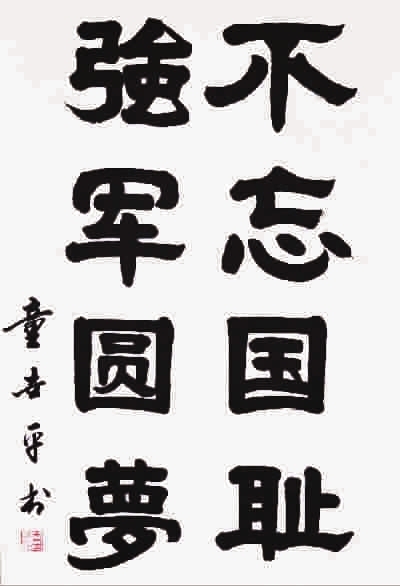 不忘国耻
強军圆夢
童世平书